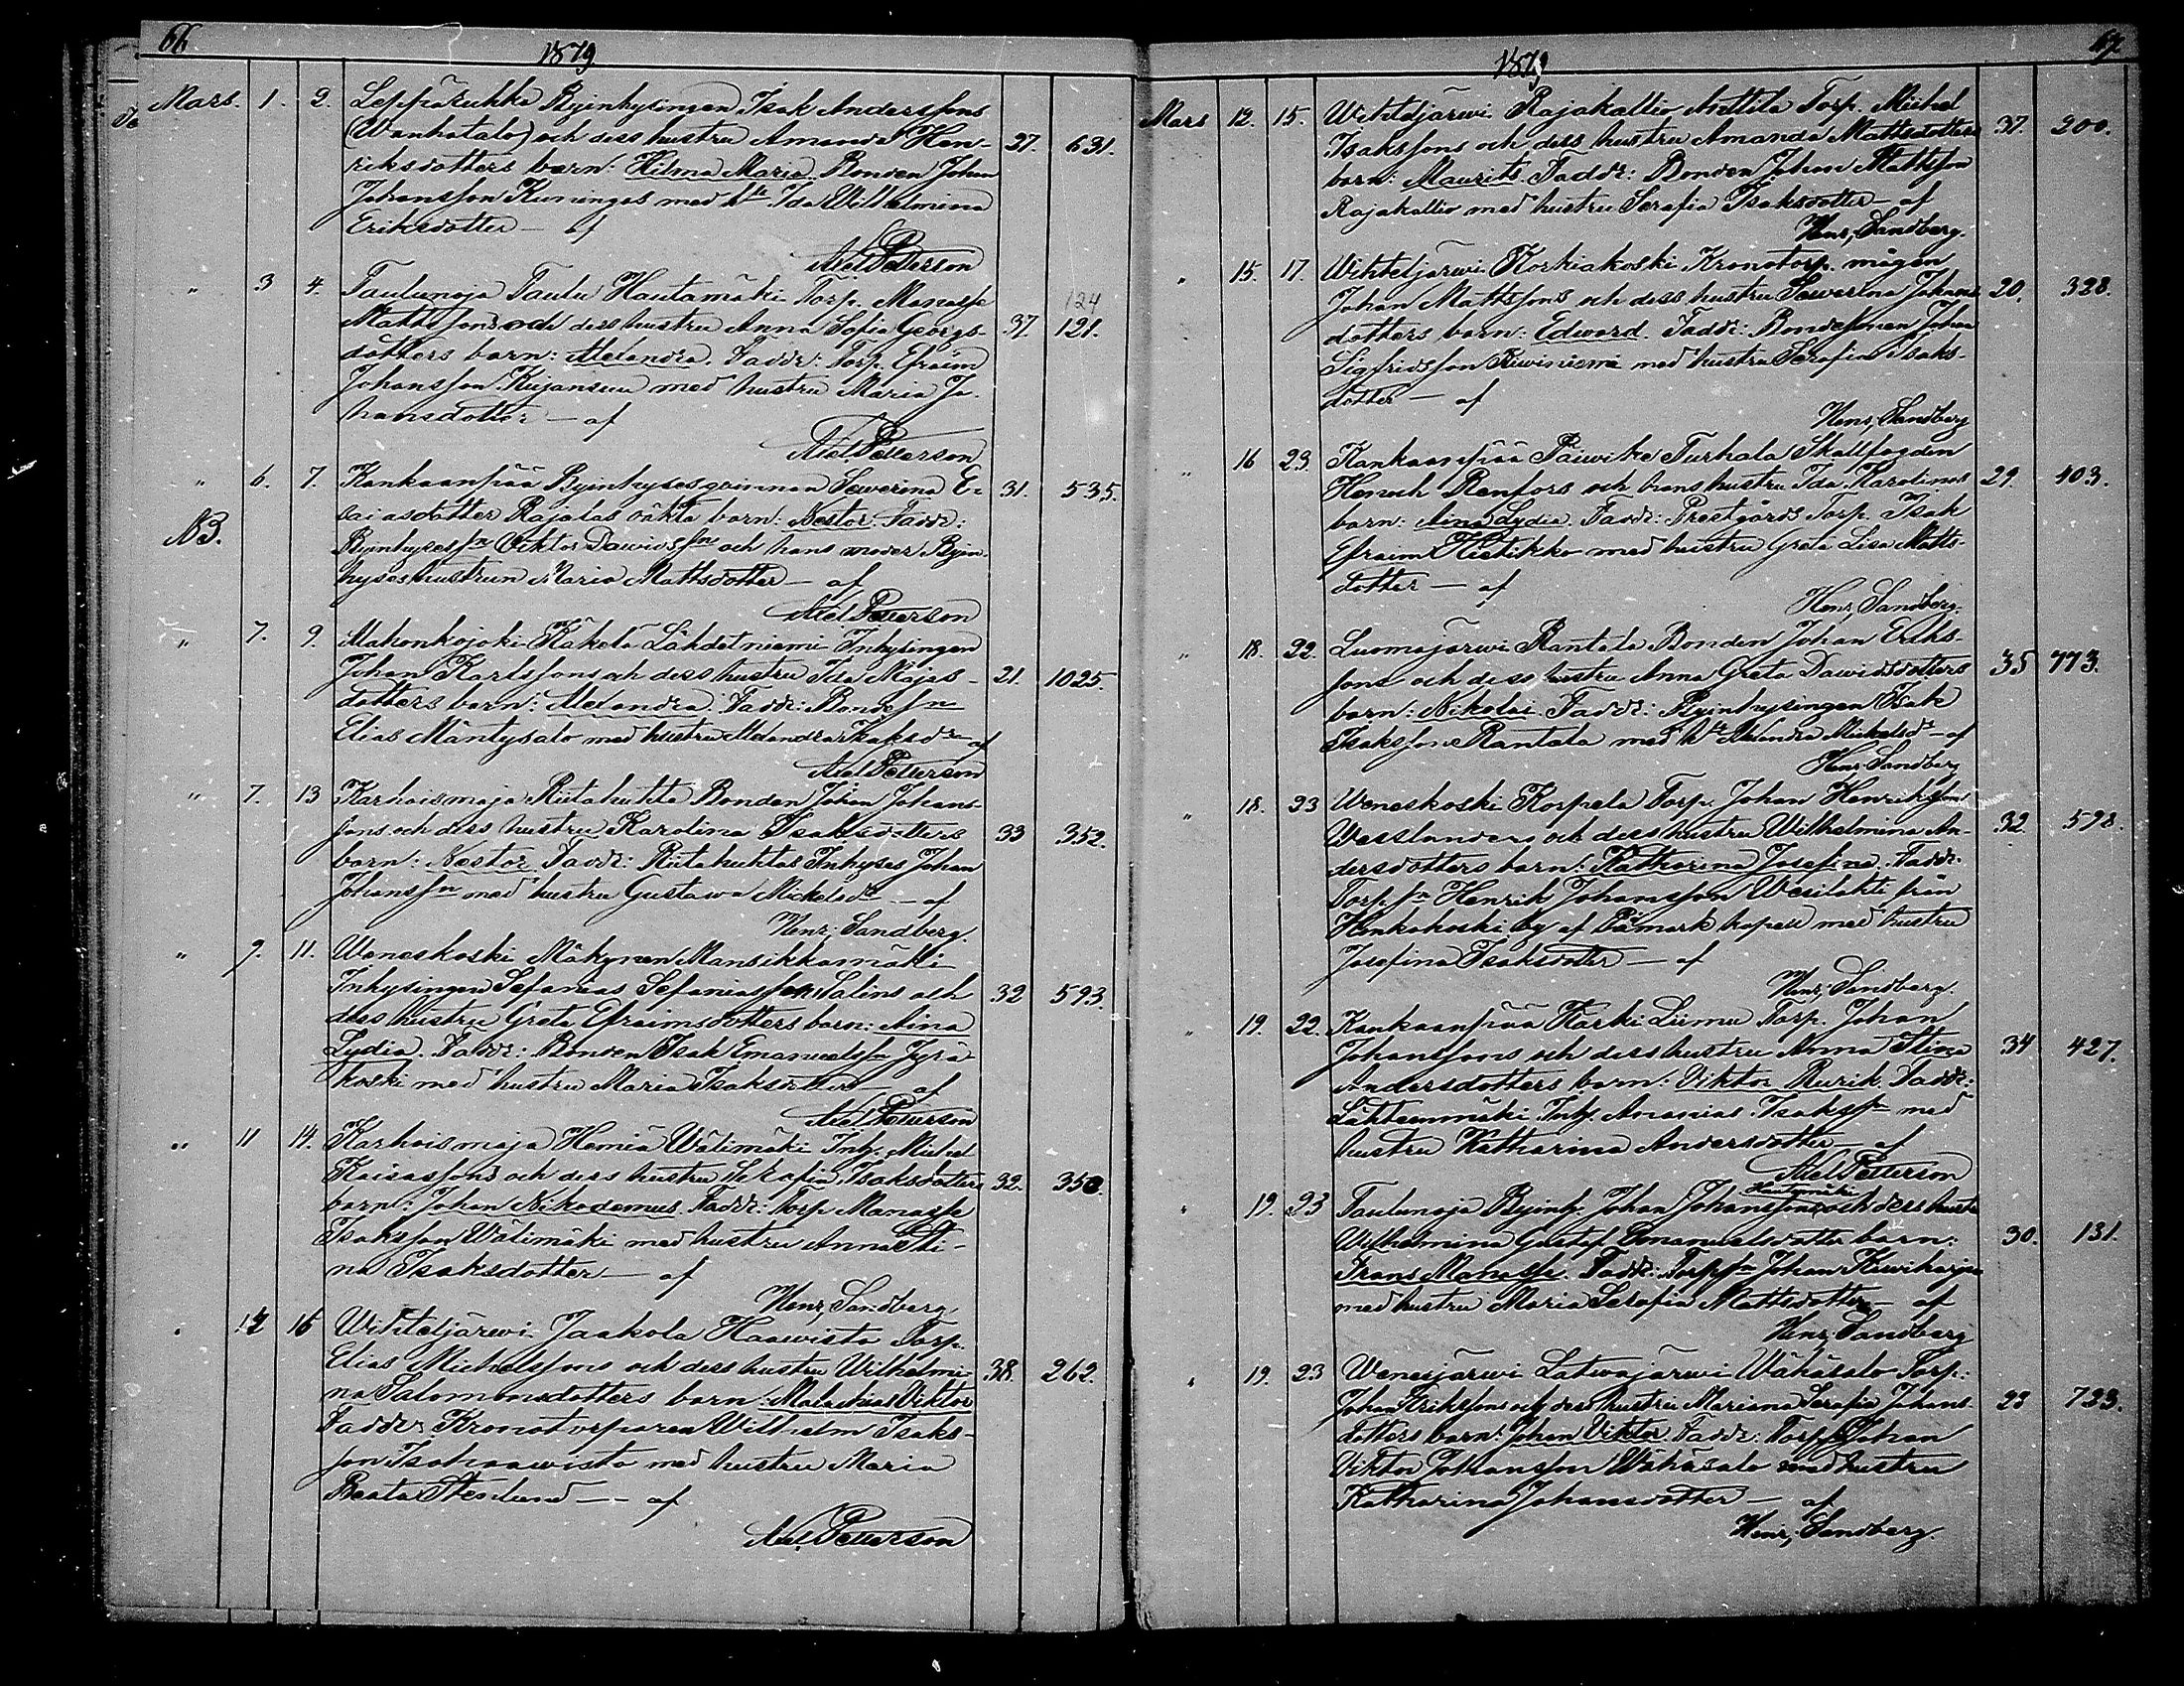 66.
1879
Mars. 1. 2. Leppäruhka Byinhysingen Isak Anderssons
(Wanhatalo) och dess hustru Amanda Hen- 27. 631.
riksdotters barn: Hilma Maria. Bonden Johan
Johansson Kuningas med h. Ida Wilhelmina
Eriksdotter — af
Axel Petterson
" 3 4. Taulunoja Taulu Hautamäki Torp. Manasse 124
Mattssons och dess hustru Anna Sofia Georgs- 37. 121.
dotters barn: Alexandra. Faddr: Torp. Efraim
Johansson Kujansuu med hustru Maria Jo-
hansdotter — af
Axel Petterson
" 6. 7. Kankaanpää Byinhysesqvinnan Sewerina E- 31. 535.
saiasdotter Rajalas oäkta barn: Nestor. Faddr:
NB. Byinhysessn Viktor Dawidssn och hans moder Byin-
hyseshustrun Maria Mattsdotter — af
Axel Petterson
" 7. 9. Mahonkojoki Käkelä Lähdetniemi Inhysingen
Johan Karlssons och dess hustru Ida Majas- 21. 1025.
dotters barn: Alexandra. Faddr: Bondesn
Elias Mäntysalo med hustru Alexandra Isaksdr — af
Axel Petterson
" 7. 13 Karhoismaja Riitahuhta Bonden Johan Johans-
sons och dess hustru Karolina Isaksdotters 33 352.
barn: Nestor. Faddr: Riitahuhtas Inhyses Johan
Johanssn med hustru Gustawa Mickelsdr — af
Henr. Sandberg.
" 9. 11. Weneskoski Mäkynen Mansikkamäki
Inhysingen Sefanias Sefaniasson Salins och 32 593.
dess hustru Greta Efraimsdotters barn: Aina
Lydia. Faddr: Bonden Isak Emanuelssn Jyrä-
koski med hustru Maria Isaksdotter — af
Axel Petterson
" 11 14. Karhoismaja Homiä Wälimäki Inh. Michel
Kaisassons och dess hustru Serafia Isaksdotters 32. 350.
barn: Johan Nikodemus. Faddr: Torp Manasse
Isaksson Wälimäki med hustru Anna Sti-
na Isaksdotter — af
Henr. Sandberg
" 12 16 Wihteljärwi Jaakola Haawisto Torp.
Elias Michelssons och dess hustru Wilhelmi- 38. 262.
na Salomonsdotters barn: Malachias Viktor
Faddr: Kronotorparen Wilhelm Isaks-
son Isohaawisto med hustru Maria
Beata Stenlund — af
Axel Petterson
67.
1879
Mars 12. 15. Wihteljärwi Rajakallio Anttila Torp. Michel
Isakssons och dess hustru Amanda Mattsdotters 37. 200.
barn: Maurits. Faddr: Bonden Johan Mattsson
Rajakallio med hustru Serafia Isaksdotter — af
Henr. Sandberg.
" 15. 17. Wihteljärwi Korkiakoski Kronotorp. mågen
Johan Mattssons och dess hustru Sewerina Johans- 20. 328.
dotters barn: Edward. Faddr: Bondesonen Johan
Sigfridsson Kiwiniemi med hustru Serafia Isaks-
dotter — af
Henr. Sandberg
" 16 23. Kankaanpää Päiwike Turhala Skallfogden
Henoch Renfors och hans hustru Ida Karolinas 29. 403.
barn: Aina Lydia. Faddr: Prestgårds Torp. Isak
Efraim Hietikko med hustru Greta Lisa Matts-
dotter — af
Henr. Sandberg.
" 18. 22. Luomajärwi Rantala Bonden Johan Eriks-
sons och dess hustru Anna Greta Dawidsdotters 35 773.
barn: Nikolai. Faddr: Byinhysingen Isak
Isakssons Rantala med h. Alexandra Mickelsdr — af
Henr. Sandberg
" 18. 23 Weneskoski Korpela Torp. Johan Henrikssons
Wesslunders och dess hustru Wilhelmina An- 32. 598.
dersdotters barn: Katharina Josefina. Faddr.
Torp.sn Henrik Johansson Wesilahti från
Honkakoski by af Påmark kapell med hustru
Josefina Isaksdotter — af
Henr. Sandberg.
" 19. 22. Kankaanpää Karki Liimu Torp. Johan
Johanssons och dess hustru Anna Stina 34 427.
Andersdotters barn: Viktor Rurik. Faddr:
Lähteenmäki Inh. Ananias Isakssn med
hustru Katharina Andersdotter — af
Axel Petterson
" 19. 23 Taulunoja Byinh. Johan Johanssons Hautamäki och dess hustr
Wilhelmina Gustaf Emanuelsdotters barn: 30. 131.
Frans Manasse. Faddr: Torpsn Johan Kiwiharju
med hustru Maria Serafia Mattsdotter — af
Henr. Sandberg
" 19. 23 Wenesjärwi Latwajärwi Wähäsalo Torp.
Johan Erikssons och dess hustru Mariana Serafia Johans- 23 723.
dotters barn: Johan Viktor. Faddr: Torp. Johan
Viktor Johansson Wähäsalo med hustru
Katharina Johansdotter — af
Henr. Sandberg.